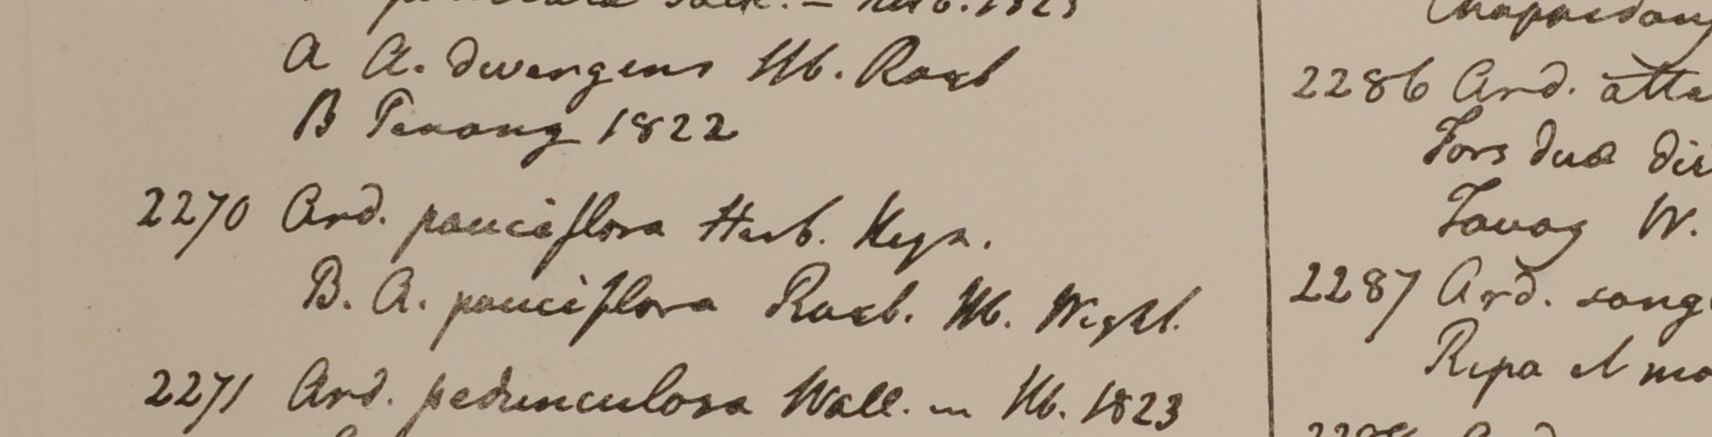 A A. divergens Hb. Roxb
B Penang 1822
2270 Ard. pauciflora Herb. Heyn.
B. A. pauciflora Roxb. Hb. Wight.
2271 Ard. pedunculosa Wall. in Hb. 1823
2286 Ard. atte
Fors duæ dis
Tavoy W.
2287 Ard. song
Ripa et mo